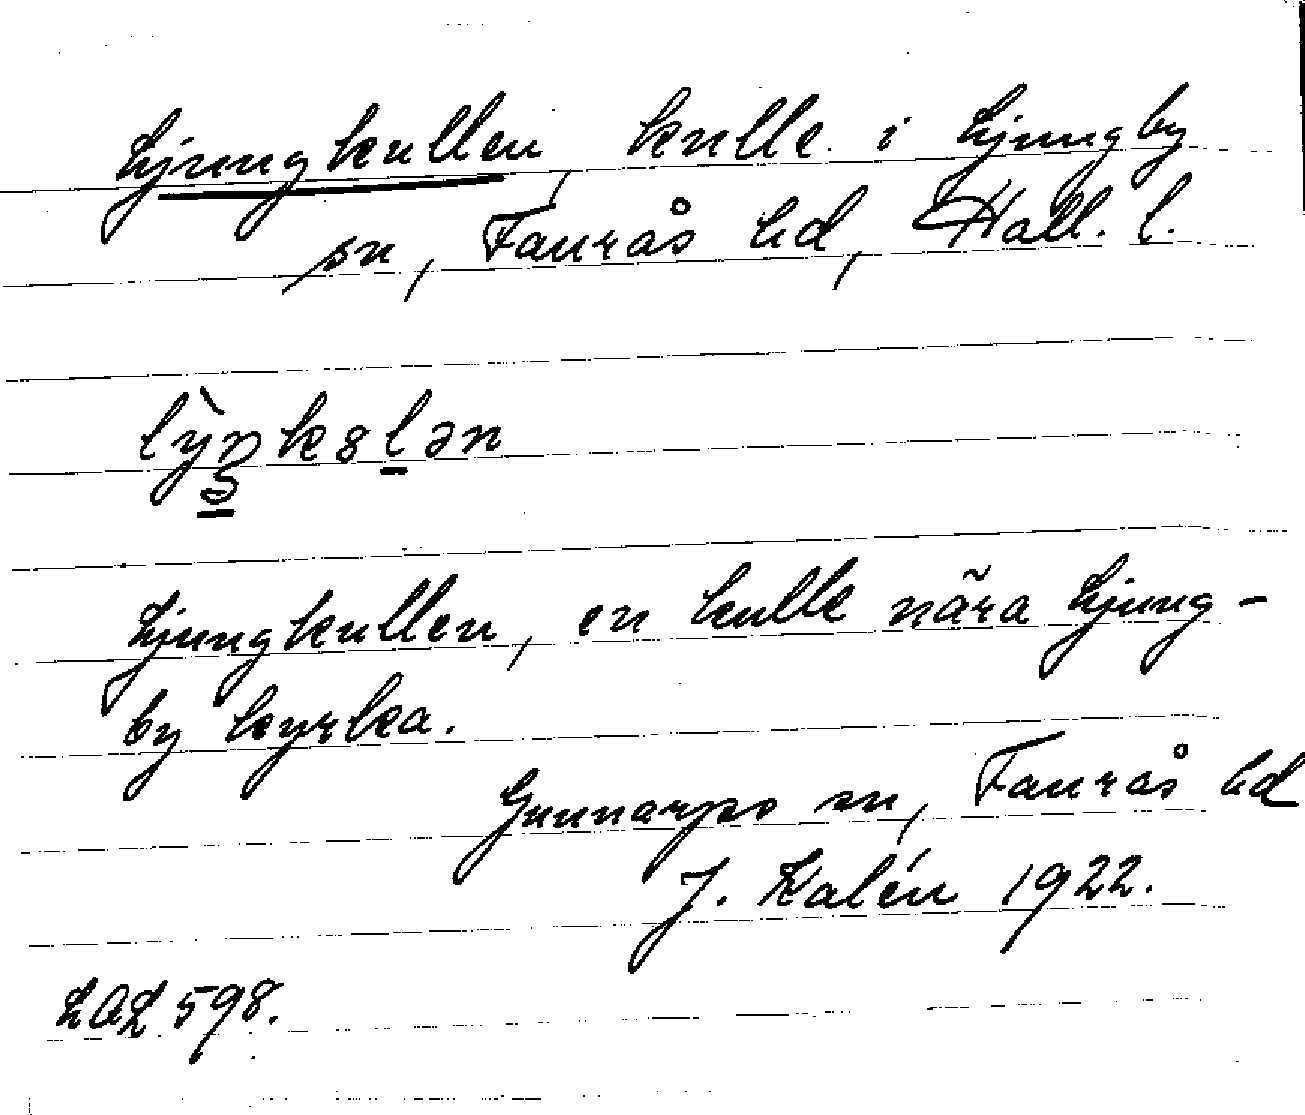 Ljungkullen, kulle i Ljungby
sn, Faurås hd, Hall. l.
Ljungkullen, en kulle nära Ljung-
by kyrka.
Gunnarps sn, Faurås hd
J. Kalén 1922.
LAL 598.